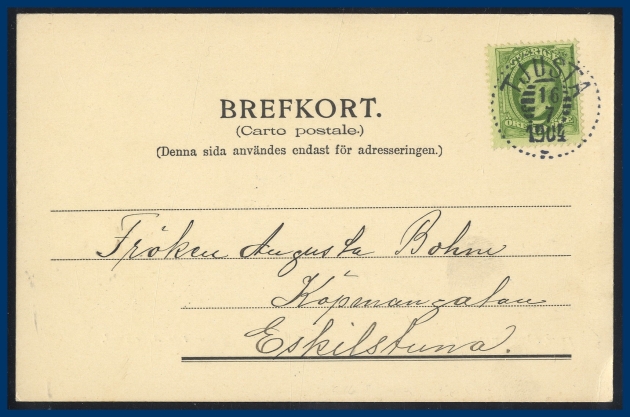 SVERIGE
TJUSTA
16
7
1904
BREFKORT.
(Carto postale.)
(Denna sida användes endast för adresseringen.)
Fröken Augusta Bohme
Köpmangatan
Eskilstuna.